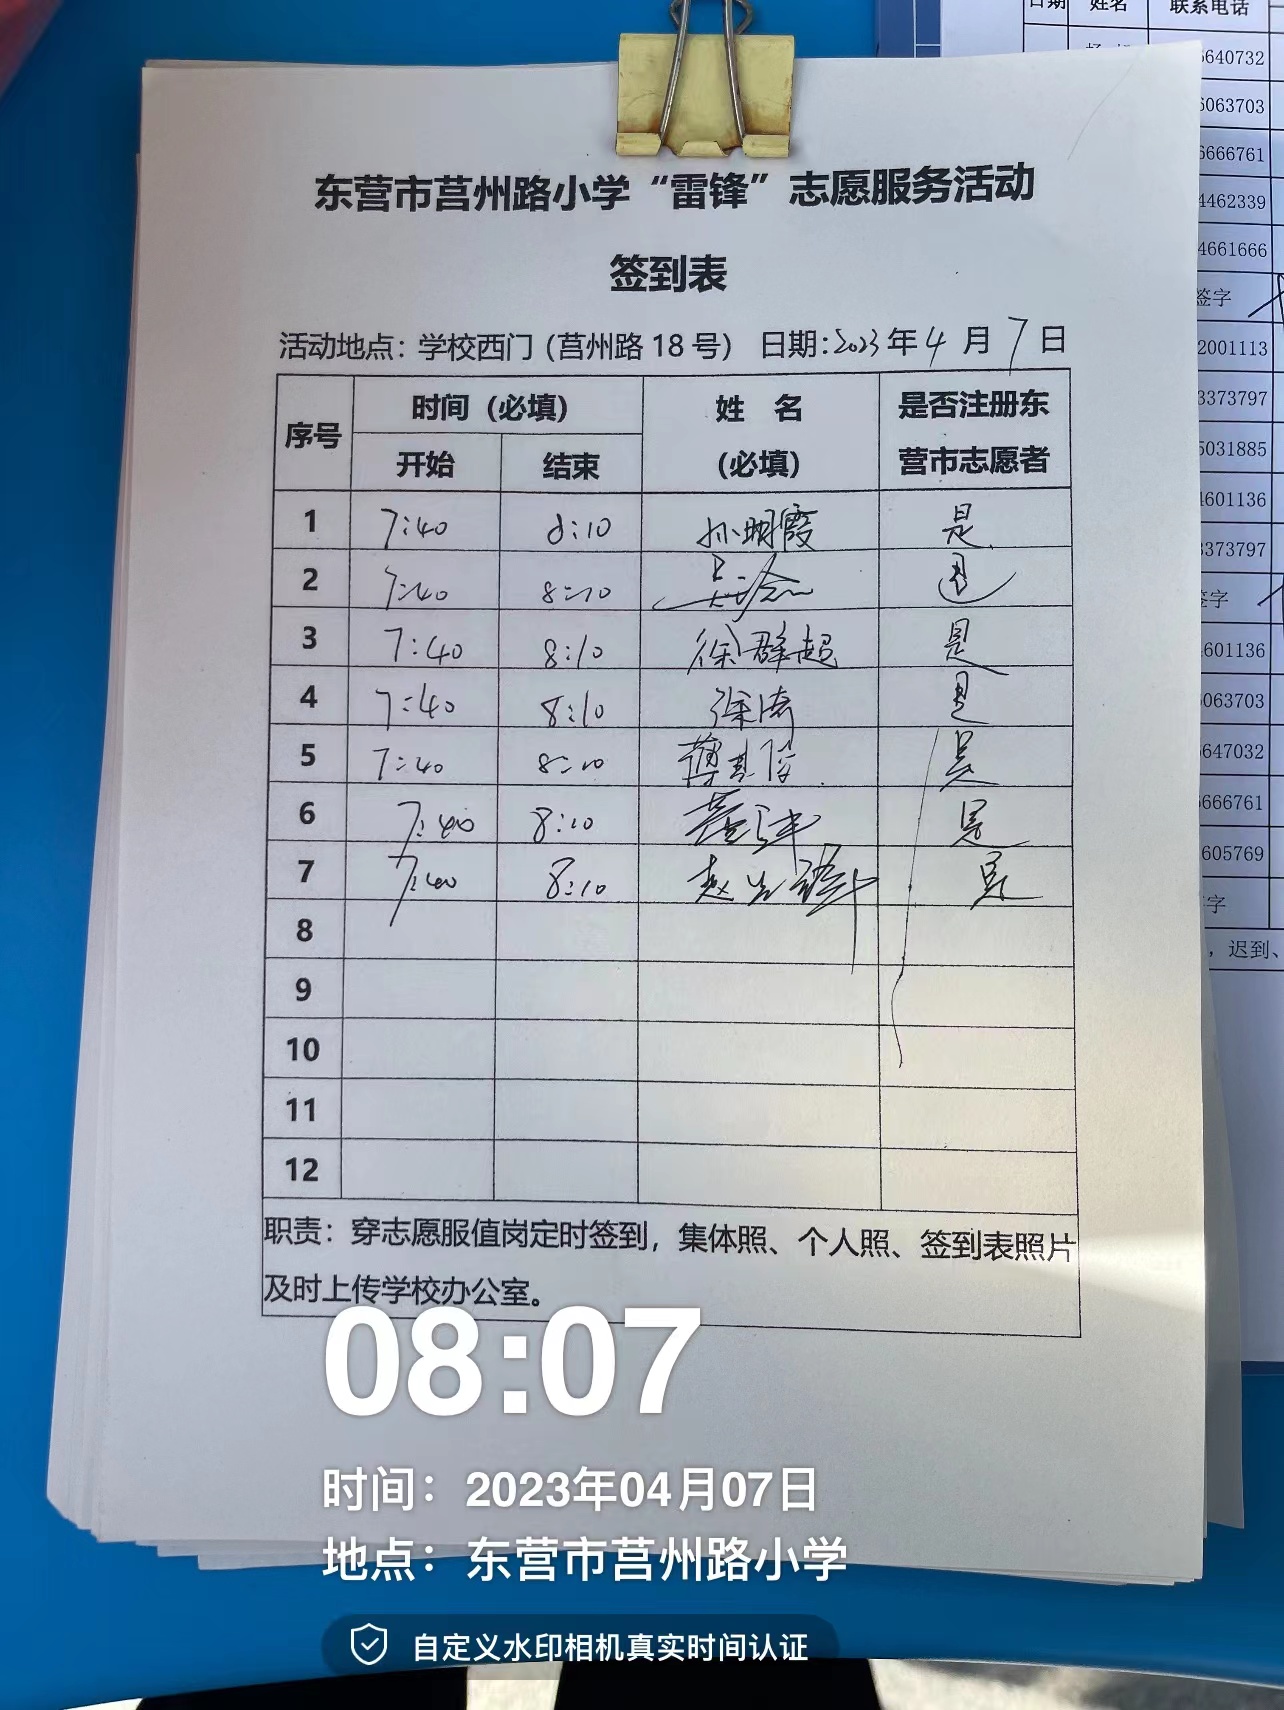 东营市莒州路小学“雷锋”志愿服务活动
签到表
活动地点：学校西门（莒州路 18 号） 日期:2023年4月7日
序号 时间（必填） 姓 名（必填） 是否注册东营市志愿者
开始 结束
1 7:40 8:10 孙明霞 是
2 7:40 8:10 是
3 7:40 8:10 徐群超 是
4 7:40 8:10 是
5 7:40 8:10 是
6 7:40 8:10 是
7 7:40 8:10 是
8
9
10
11
12
职责：穿志愿服值岗定时签到，集体照、个人照、签到表照片
及时上传学校办公室。
08:07
时间：2023年04月07日
地点：东营市莒州路小学
自定义水印相机真实时间认证
日期 姓名 联系电话
640732
063703
666761
462339
4661666
签字
2001113
3373797
031885
601136
373797
签字
601136
063703
647032
666761
605769
字
，迟到、